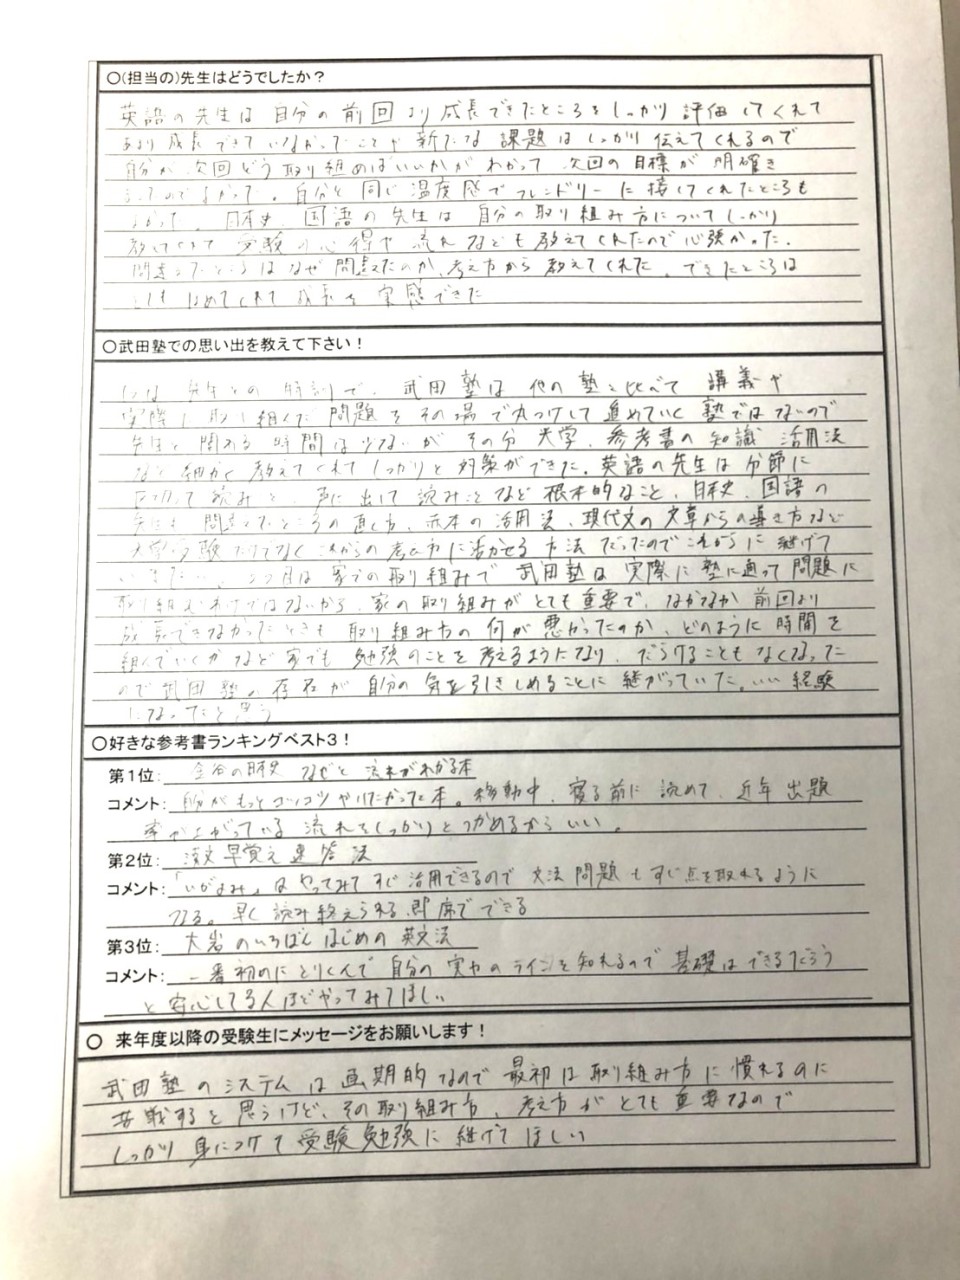 ○(担当の)先生はどうでしたか？
英語の先生は自分の前回より成長できたところをしっかり評価してくれて
あまり成長できていなかったことや新たな課題はしっかり伝えてくれるので
自分が次回どう取り組めばいいかがわかって次回の目標が明確き
ってのでよかった。自分と同じ温度感でフレンドリーに接してくれたところも
よかった。日本史、国語の先生は自分の取り組み方についてしっかり
教えてくれて受験の心得や流れなども教えてくれたので心強かった。
間違えたところはなぜ間違えたのか、考え方から教えてくれた。できたところは
とてもほめてくれて成長を実感できた
○武田塾での思い出を教えて下さい！
先生との特訓で、武田塾は他の塾と比べて講義や
実際に取り組んだ問題をその場で丸つけして進めていく塾ではないので
先生と関わる時間は少ないがその分大学、参考書の知識活用法
など細かく教えてくれてしっかりと対策ができた。英語の先生は分節に
区切って読みと、声に出して読みことなど根本的なこと、日本史、国語の
先生も間違えたところの直し方、赤本の活用法、現代文の文章からの導き方など
大学受験だけでなくこれからの考え方に活かせる方法だったのでこれからに継げて
いきたい。2つ目は家での取り組みで武田塾は実際に塾に通って問題に
取り組むわけではないから、家の取り組みがとても重要で、なかなか前回より
成長できなかったときも取り組み方の何が悪かったのか、どのように時間を
組んでいくかなど家でも勉強のことを考えるようになり、だらけることもなくなった
ので武田塾の存在が自分の気を引きしめることに継がっていた。いい経験
になったと思う
○好きな参考書ランキングベスト3！
第1位： 金谷の日本史 なぜと流れがわかる本
コメント： 自分がもっとコツコツやりたかった本。移動中、寝る前に読めて、近年出題
率が上がっている流れをしっかりとつかめるからいい。
第2位： 漢文早覚え速答法
コメント： 「いがよみ」はやってみてすぐ活用できるので文法問題もすぐ点を取れるように
なる。早く読み終えられる即席でできる
第3位： 大岩のいちばんはじめの英文法
コメント： 一番初めにとりくんで自分の実力のラインを知れるので基礎はできるだろう
と安心してる人ほどやってみてほしい
○ 来年度以降の受験生にメッセージをお願いします！
武田塾のシステムは画期的なので最初は取り組み方に慣れるのに
苦戦すると思うけど、その取り組み方、考え方がとても重要なので
しっかり身につけて受験勉強に継げてほしい